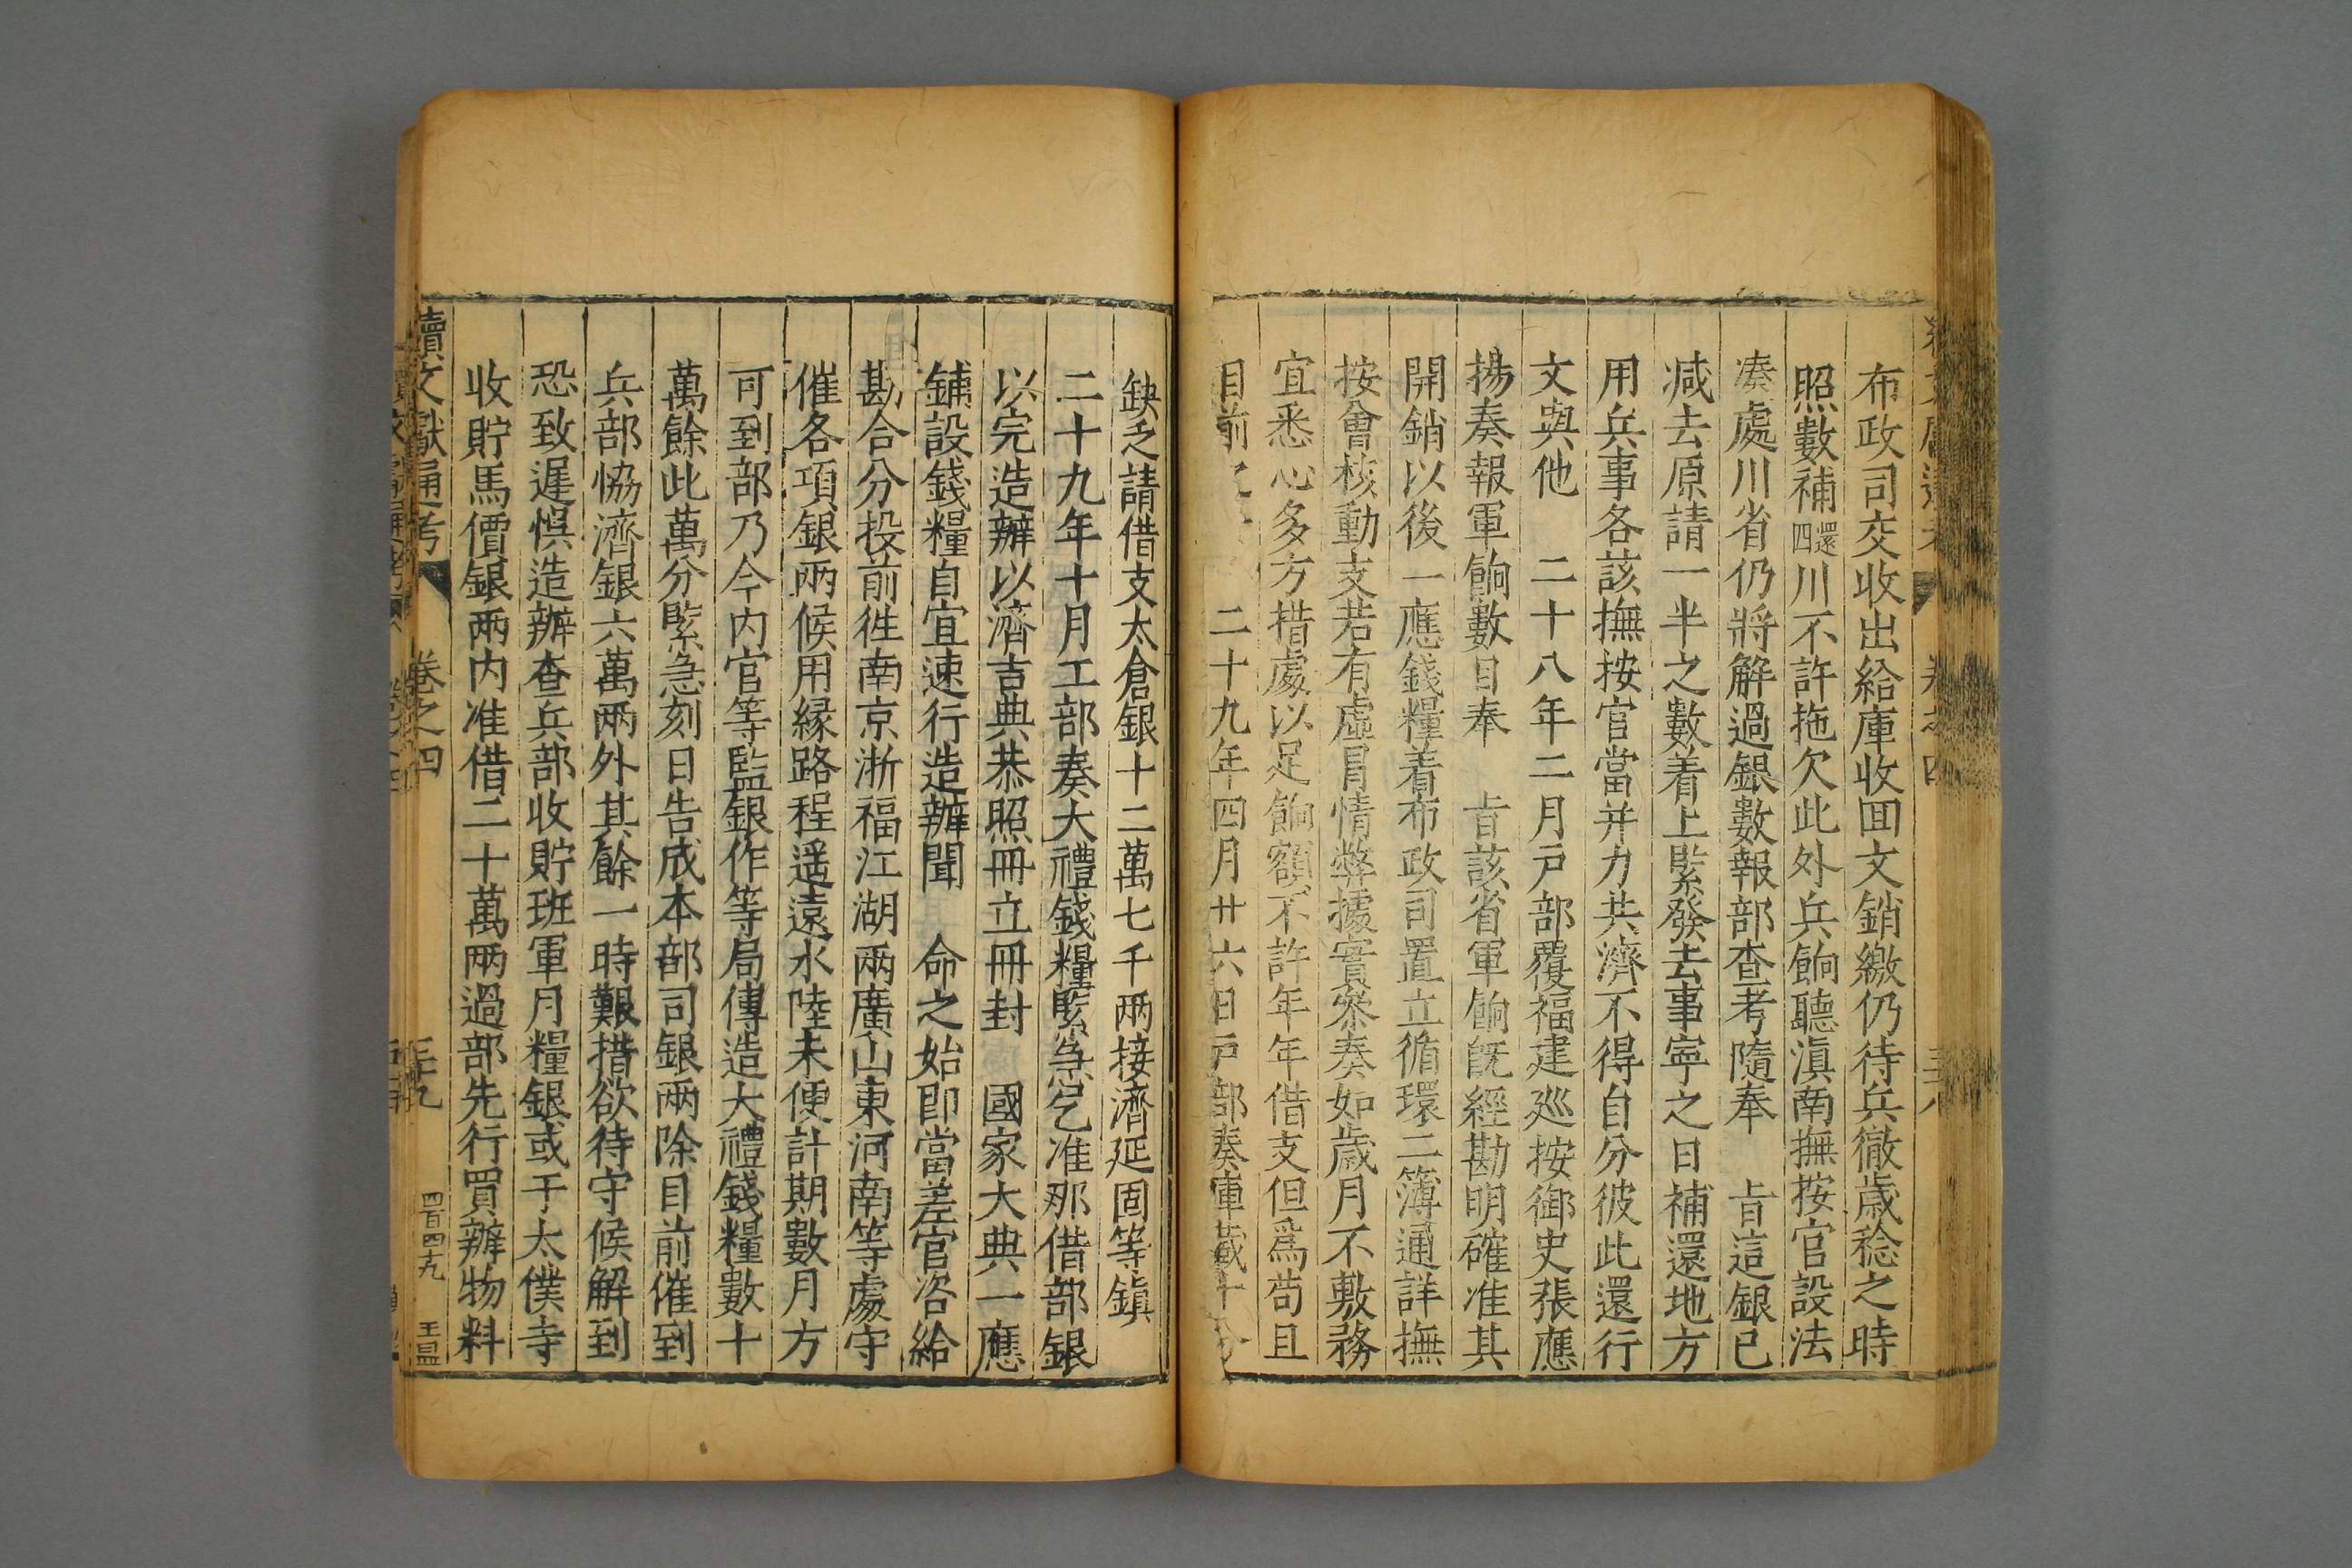 布政司交收出給庫收囬文銷繳仍待兵徹歳稔之時
照數補還四川不許拖欠此外兵餉聽滇南撫按官設法
凑處川省仍將解過銀數報部查考隨奉　旨這銀已
减去原請一半之數着上緊發去事寧之日補還地方
用兵事各該撫按官當并力共濟不得自分彼此還行
文與他　二十八年二月戸部覆福建廵按御史張應
揚奏報軍餉數目奉　旨該省軍餉旣經勘明確准其
開銷以後一應錢糧着布政司置立循環二簿通詳撫
按會核動支若有虛冒情弊據實叅奏如歳月不敷務
宜悉心多方措處以足餉額不許年年借支但爲苟且
目前之　二十九年四月廿六日戸部奏庫藏十分
缺乏請借支太倉銀十二萬七千兩接濟延固等鎮
二十九年十月工部奏大禮錢糧緊急乞准那借部銀
以完造辦以濟吉典恭照冊立冊封　國家大典一應
鋪設錢糧自宜速行造辦聞　命之始即當差官咨給
勘合分投前徃南京浙福江湖兩廣山東河南等處守
催各項銀兩候用緣路程遥遠水陸未便計期數月方
可到部乃今内官等監銀作等局傳造大禮錢糧數十
萬餘此萬分緊急刻日告成本部司銀兩除目前催到
兵部恊濟銀六萬兩外其餘一時艱措欲待守候解到
恐致遲悮造辦查兵部收貯班軍月糧銀或于太僕寺
收貯馬價銀兩内准借二十萬兩過部先行買辦物料
續文獻通考　卷之四　三十九　四百四十九　王昷